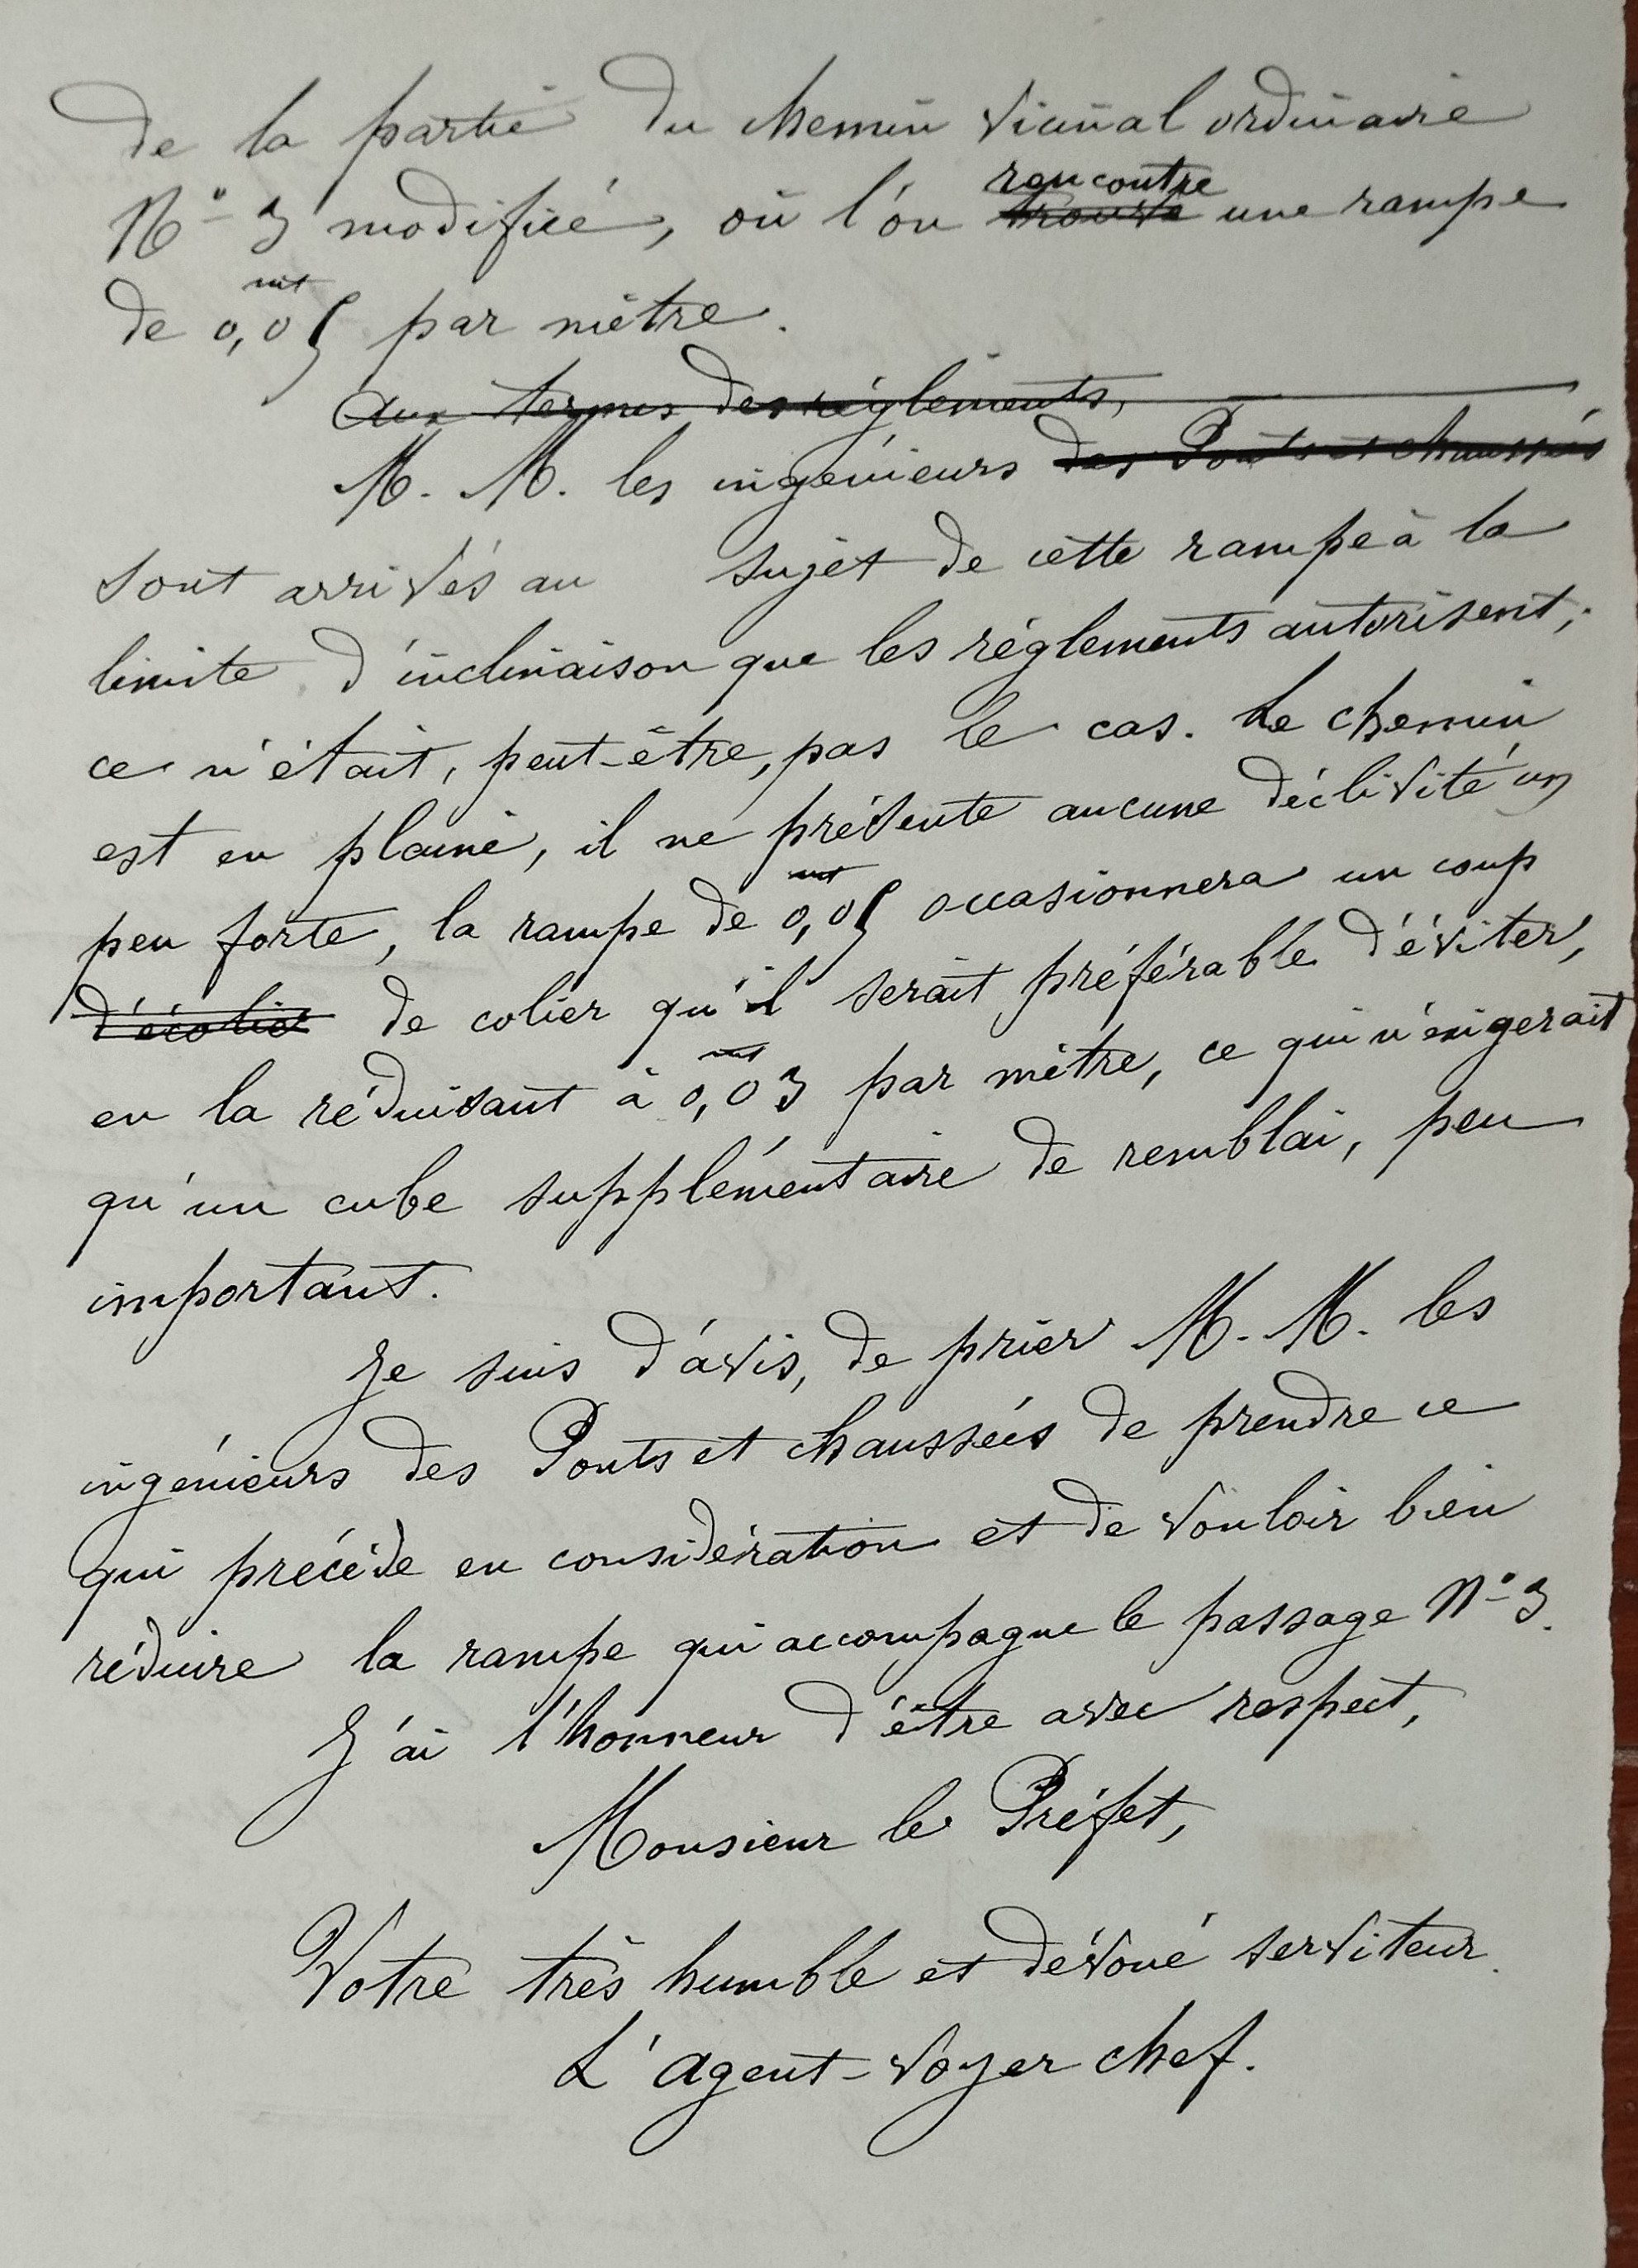 de la partie du chemin vicinal ordinaire
N° 3 modifiée, où l'on trouve rencontre une rampe
de 0,mt05 par mètre.
Aux termes des règlements,
M. M. les ingénieurs des Ponts et chaussées
sont arrivés au sujet de cette rampe à la
limite d'inclinaison que les règlements autorisent;
ce n'était, peut-être, pas le cas. Le chemin
est en plaine, il ne présente aucune déclivité un
peu forte, la rampe de 0,mt05 occasionnera un coup
d'écolier de colier qu'il serait préférable d'éviter,
en la réduisant à 0,mt03 par mètre, ce qui n'exigerait
qu'un cube supplémentaire de remblai, peu
important.
Je suis d'avis, de prier M. M. les
ingénieurs des Ponts et chaussées de prendre ce
qui précède en considération et de vouloir bien
réduire la rampe qui accompagne le passage N° 3.
J'ai l'honneur d'être avec respect,
Monsieur le Préfet,
Votre très humble et dévoué serviteur.
L'agent-voyer chef.